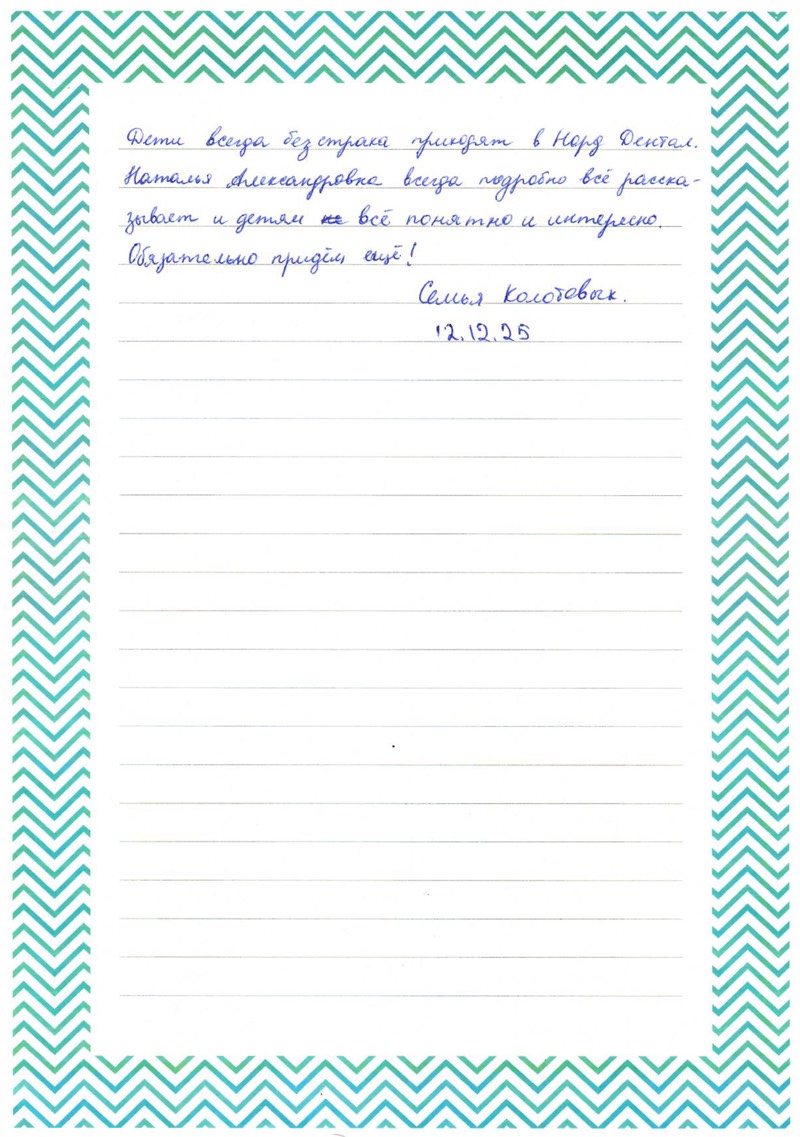 Дети всегда без страха приходят в Норд Дентал.
Наталья Александровна всегда подробно всё расска-
зывает и детям всё понятно и интересно.
Обязательно придём ещё!
Семья Колотовых.
12.12.25